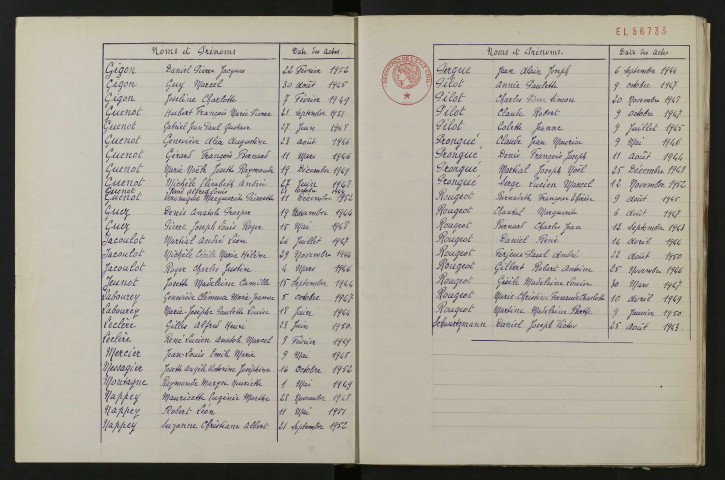 Noms et Prénoms Date des Actes
Gigon Daniel Pierre Jacques 22 Février 1952
Gigon Guy Marcel 30 août 1945
Gigon Joseline Charlotte 7 Février 1949
Guenot Hubert François Marie Pierre 21 Septembre 1951
Guenot Gabriel Jean Paul Gustave 27 Juin 1948
Guenot Geneviève Alix Augustine 23 août 1946
Guenot Gérard François Bernard 11 Mars 1946
Guenot Marie Noële Josette Raymonde 19 Décembre 1949
Guenot Michèle Elisabeth Andrée 27 Juin 1948
Guenot René Alfred Louis
Guenot Véronique Marguerite Pierrette 11 Décembre 1952
Guez Denis Anatole Prosper 19 Novembre 1944
Guez Pierre Joseph Louis Roger 15 Mai 1948
Jacoulot Martial André Léon 26 Juillet 1947
Jacoulot Michèle Cécile Marie Hélène 29 Novembre 1944
Jacoulot Roger Charles Justin 4 Mars 1946
Jeunot Josette Madeleine Camille 15 Septembre 1944
Labourey Geneviève Clémence Marie Jeanne 5 octobre 1947
Labourey Marie Josèphe Paulette Louise 18 Juin 1944
Leclère Gilles Alfred Henri 23 Juin 1950
Leclère René Lucien Anatole Marcel 8 Février 1949
Mercier Jean-Louis Emile Marie 9 Mai 1948
Messagier Josette Angèle Victorine Joséphine 16 Octobre 1952
Montagne Raymonde Maryse Henriette 1 Mai 1949
Nappey Mauricette Eugénie Marthe 28 Novembre 1948
Nappey Robert Léon 11 Mai 1951
Nappey Suzanne Christiane Albert 21 Septembre 1952
EL 56733
Noms et Prénoms. Date des Actes
Pergue Jean Alain Joseph 6 Septembre 1944
Pilot Annie Paulette 9 octobre 1947
Pilot Charles Pierre Simone 20 Novembre 1948
Pilot Claude Robert 9 octobre 1947
Pilot Colette Jeanne 9 Juillet 1945
Prongué Claude Jean Maurice 9 Mai 1946
Prongué Denis François Joseph 11 Août 1944
Prongué Martial Joseph Noël 25 Décembre 1948
Prongué Serge Lucien Marcel 12 Novembre 1952
Rougeot Bernadette Françoise 9 août 1945
Rougeot Chantal Marguerite 6 août 1947
Rougeot Bernard Charles Jean 12 Septembre 1948
Rougeot Daniel René 14 Avril 1944
Rougeot Paul André 22 août 1950
Rougeot Gilbert Robert Antoine 25 Novembre 1946
Rougeot Gisèle Madeleine Louise 30 Mars 1947
Rougeot Marie-Christine Fernande Charlotte 10 Avril 1949
Rougeot Martine Madeleine Marthe 9 Janvier 1950
Schwartzmann Daniel Joseph Victor 25 Août 1943